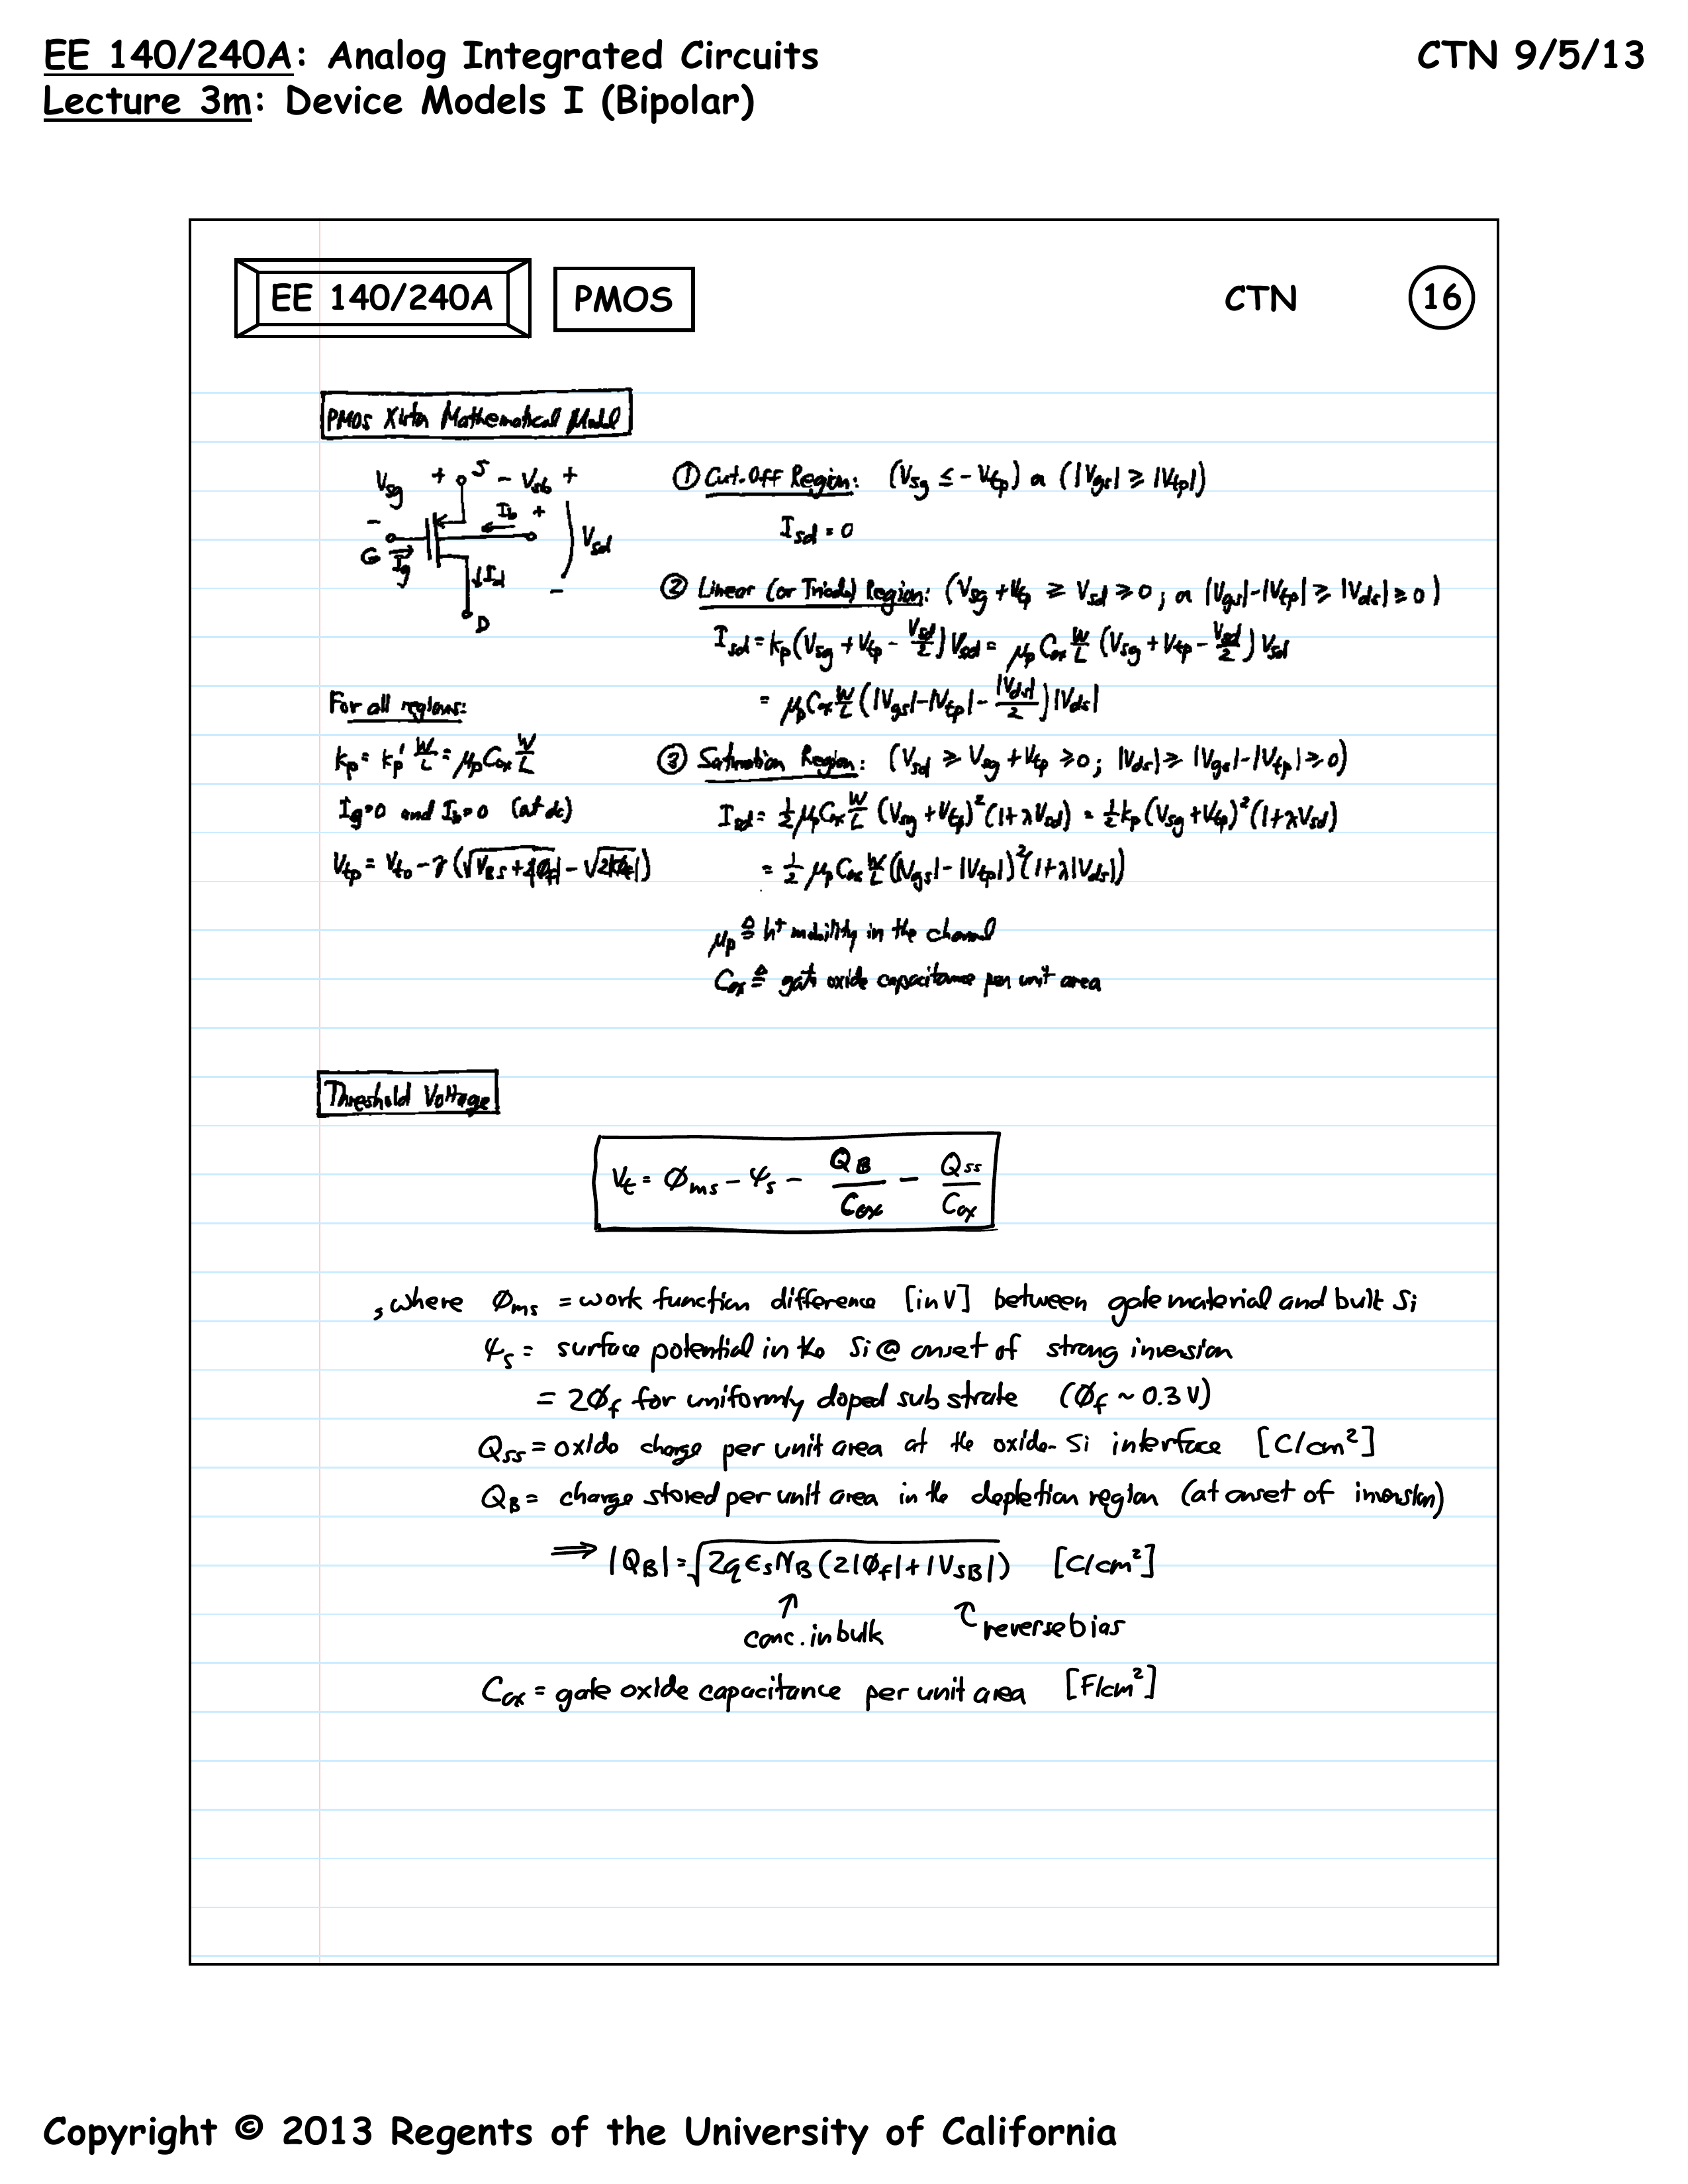 EE 140/240A: Analog Integrated Circuits CTN 9/5/13
Lecture 3m: Device Models I (Bipolar)
EE 140/240A PMOS CTN 16
PMOS Xistn Mathematical Model
Vsg + S - Vsb +
- Ib +
G Ig Id Vsd
-
D
① Cut-Off Region: (Vsg ≤ -Vtp) or (|Vgs| ≥ |Vtp|)
Isd = 0
② Linear (or Triode) Region: (Vsg + Vtp ≥ Vsd ≥ 0; or |Vgs|-|Vtp| ≥ |Vds| ≥ 0)
Isd = kp(Vsg + Vtp - Vsd/2)Vsd = μp Cox W/L (Vsg + Vtp - Vsd/2) Vsd
= μp Cox W/L (|Vgs|-|Vtp| - |Vds|/2)|Vds|
For all regions:
kp = kp' W/L = μp Cox W/L
Ig=0 and Ib=0 (at dc)
Vtp = Vto - γ(√(VBS + 2|φf|) - √(2|φf|))
③ Saturation Region: (Vsd ≥ Vsg + Vtp ≥ 0; |Vds| ≥ |Vgs|-|Vtp| ≥ 0)
Isd = ½ μp Cox W/L (Vsg + Vtp)²(1+λVsd) = ½ kp (Vsg + Vtp)²(1+λVsd)
= ½ μp Cox W/L (|Vgs|-|Vtp|)²(1+λ|Vds|)
μp ≜ h⁺ mobility in the channel
Cox ≜ gate oxide capacitance per unit area
Threshold Voltage
Vt = φms - ψs - QB/Cox - Qss/Cox
, where φms = work function difference [in V] between gate material and bulk Si
ψs = surface potential in the Si @ onset of strong inversion
= 2φf for uniformly doped substrate (φf ~ 0.3 V)
Qss = oxide charge per unit area at the oxide-Si interface [C/cm²]
QB = charge stored per unit area in the depletion region (at onset of inversion)
⇒ |QB| = √(2qεsNB(2|φf|+|VSB|)) [C/cm²]
↑ conc. in bulk ↑ reverse bias
Cox = gate oxide capacitance per unit area [F/cm²]
Copyright © 2013 Regents of the University of California